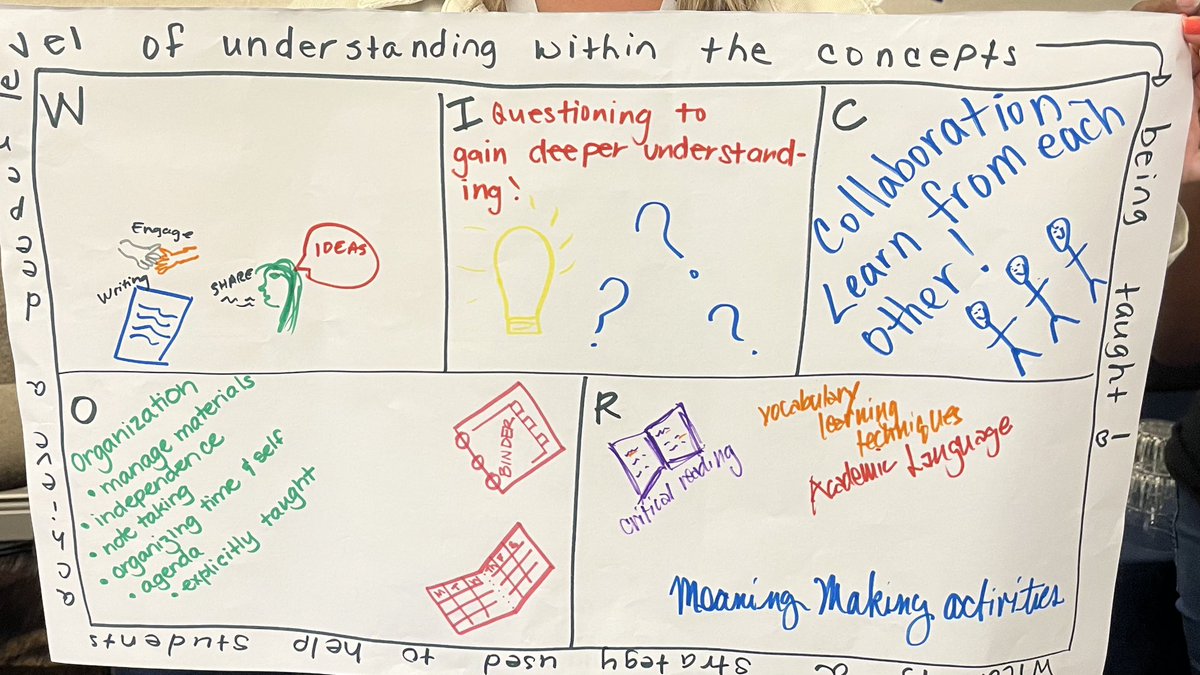 is a strategy used to help students
achieve a deeper le
vel of understanding within the concepts
being taught!
W
Engage
Writing
SHARE
IDEAS
I Questioning to
gain deeper understand-
ing!
? ? ?
C
Collaboration -
Learn from each
other!
O
Organization
• manage materials
• independence
• note taking
• organizing time & self
• agenda
• explicitly taught
BINDER
M T W TH F S
R
critical reading
vocabulary
learning
techniques
Academic Language
Meaning Making activities